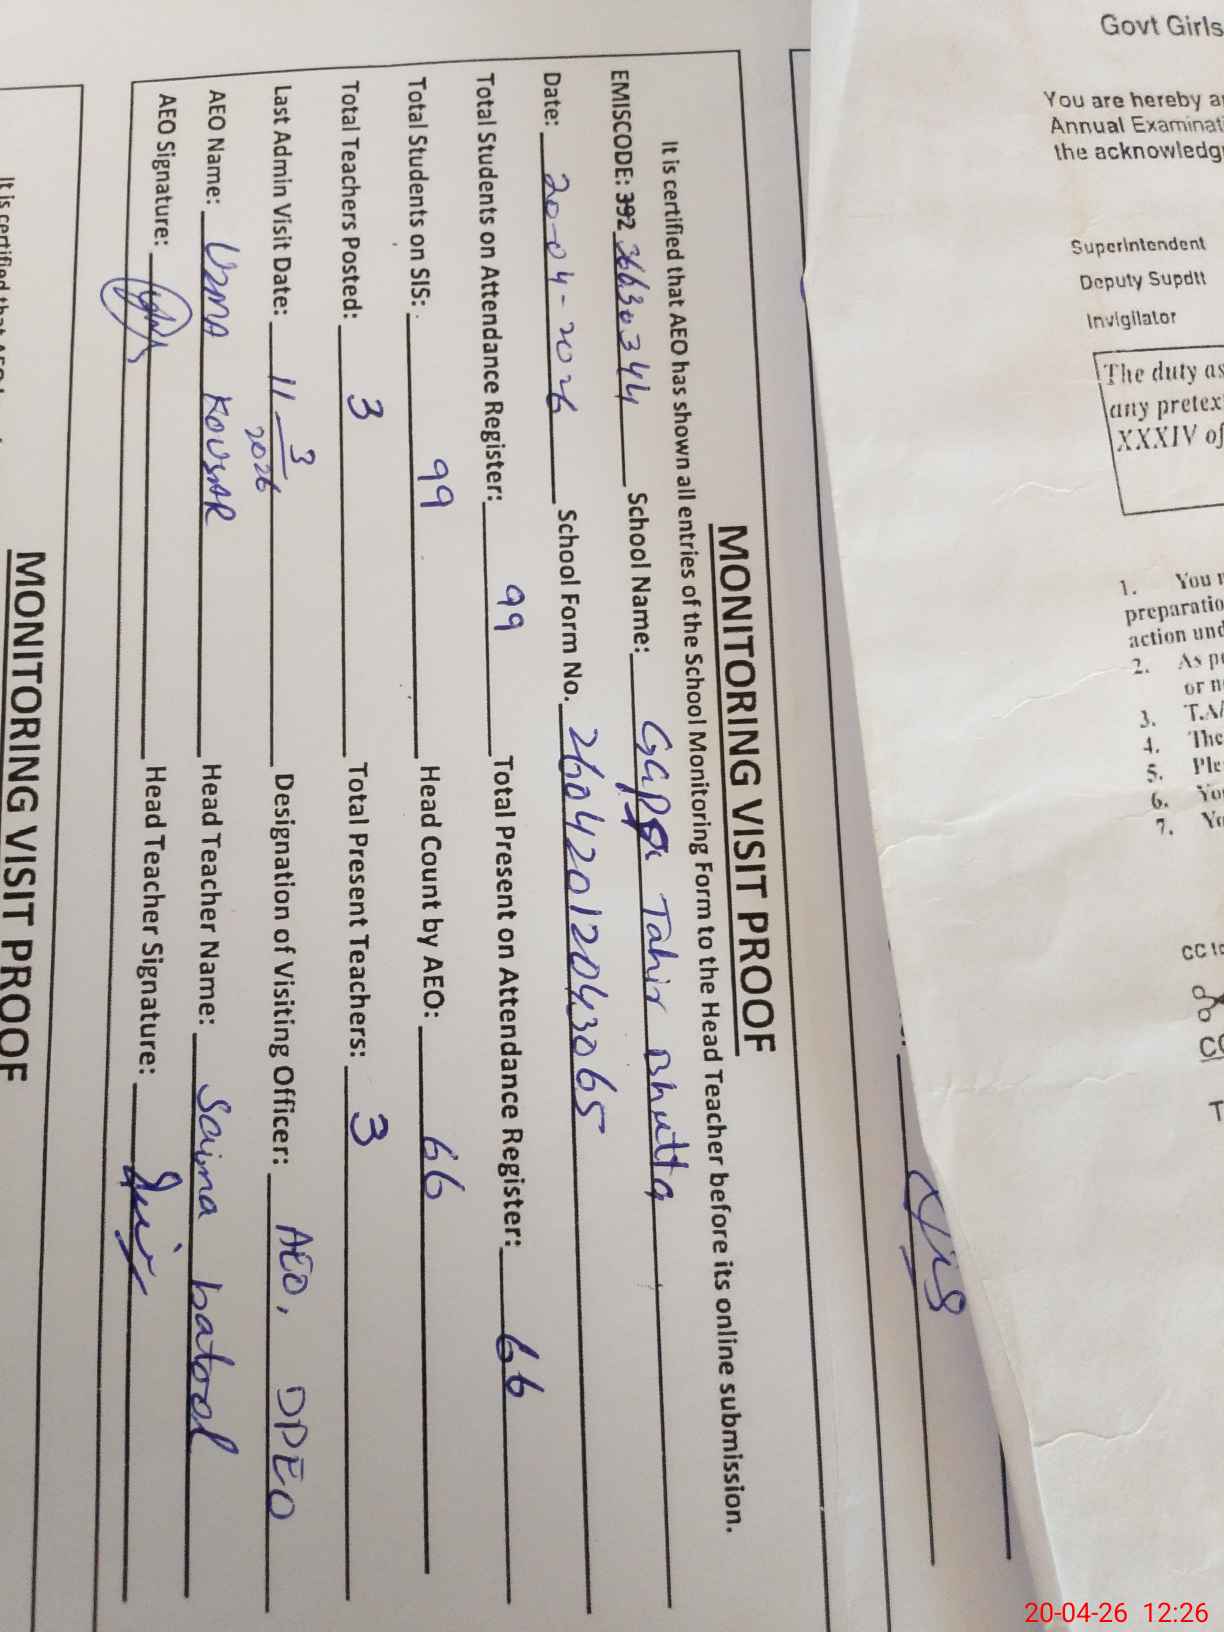 MONITORING VISIT PROOF
It is certified that AEO has shown all entries of the School Monitoring Form to the Head Teacher before its online submission.
EMISCODE: 392 36630344 School Name: Tahir Bhutta
Date: 20-04-2026 School Form No. 26042012043065
Total Students on Attendance Register: 99 Total Present on Attendance Register: 66
Total Students on SIS: 99 Head Count by AEO: 66
Total Teachers Posted: 3 Total Present Teachers: 3
Last Admin Visit Date: 11 3 2026 Designation of Visiting Officer: AEO, DPEO
AEO Name: UZMA KOUSAR Head Teacher Name: Saima batool
AEO Signature: Head Teacher Signature:
MONITORING VISIT PROOF
It is certified that
Govt Girls
You are hereby
Annual
the
Superintendent
Deputy Supdtt
Invigilator
The duty as
any
XXXIV of
1. You
action
2. As
or
3.
4. The
5.
6.
7.
CC
20-04-26 12:26